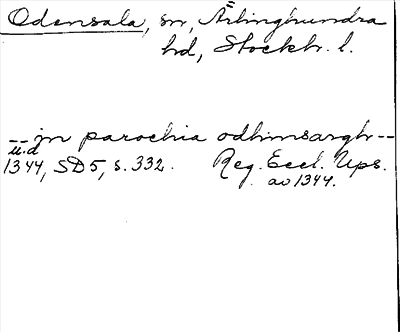 Odensala, sn, Ärlinghundra
hd, Stockh. l.
-- in parochia odhinsargh --
u.d
1344, SD 5, s. 332. Reg. Eccl. Ups.
av 1344.